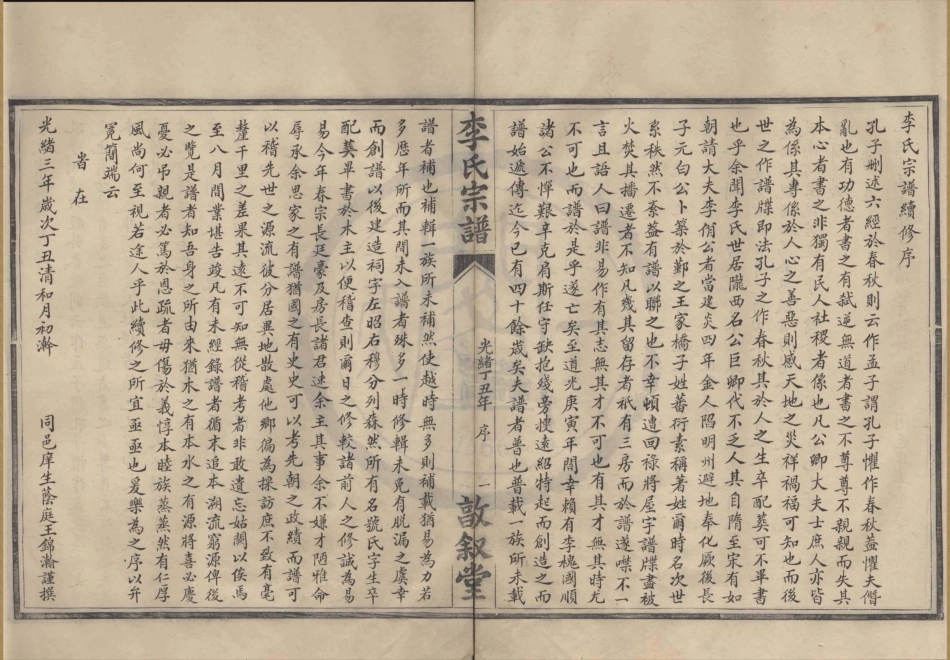 李氏宗譜續修序
孔子刪述六經於春秋則云作孟子謂孔子懼作春秋蓋懼夫僭
亂也有功德者書之有弒逆無道者書之不尊尊不親親而失其
本心者書之非獨有民人社稷者係也凡公卿大夫士庶人亦皆
為係其專係於人心之善惡則感天地之災祥禍福可知也而後
世之作譜牒即法孔子之作春秋其於人之生卒配葬可不畢書
也乎余聞李氏世居隴西名公巨卿代不乏人其自隋至宋有如
朝請大夫李俏公者當建炎四年金人陷明州避地奉化厥後長
子元白公卜築於鄞之王家橋子姓蕃衍素稱著姓爾時名次世
系秩然不紊蓋有譜以聯之也不幸頓遭回祿將屋宇譜牒盡被
火焚其播遷者不知凡幾其留存者祇有三房而於譜遂噤不一
言且語人曰譜非易作有其志無其才不可也有其才無其時尤
不可也而譜於是乎遂亡矣至道光庚寅年間幸賴有李槐國順
諸公不憚艱辛克肩斯任守缺抱殘旁搜遠紹特起而創造之而
譜始遞傳迄今已有四十餘歲矣夫譜者普也普載一族所未載
李氏宗譜
光緒丁丑年 序 一
敦叙堂
譜者補也補輯一族所未補然使越時無多則補載猶易為力若
多歷年所而其間未入譜者殊多一時修輯未免有脫漏之虞幸
而創譜以後建造祠宇左昭右穆分列森然所有名號氏字生卒
配葬畢書於木主以便稽查則爾日之修較諸前人之修誠為易
易今年春宗長廷豪及房長諸君述余主其事余不嫌才陋雅命
辱承余思家之有譜猶國之有史史可以考先朝之政績而譜可
以稽先世之源流彼分居異地散處他鄉偏為採訪庶不致有毫
釐千里之差果其遠不可知無從稽考者非敢遺忘姑闕以俟焉
至八月間業堪告竣凡有未經錄譜者循末追本溯流窮源俾後
之覽是譜者知吾身之所由來猶木之有本水之有源將喜必慶
憂必弔親者必篤於恩疏者毋傷於義惇本睦族蒸蒸然有仁厚
風尚何至視若途人乎此續修之所宜亟亟也爰樂為之序以弁
冕簡端云
旹在
光緒三年歲次丁丑清和月初澣 同邑庠生蔭庭王錦瀚謹撰